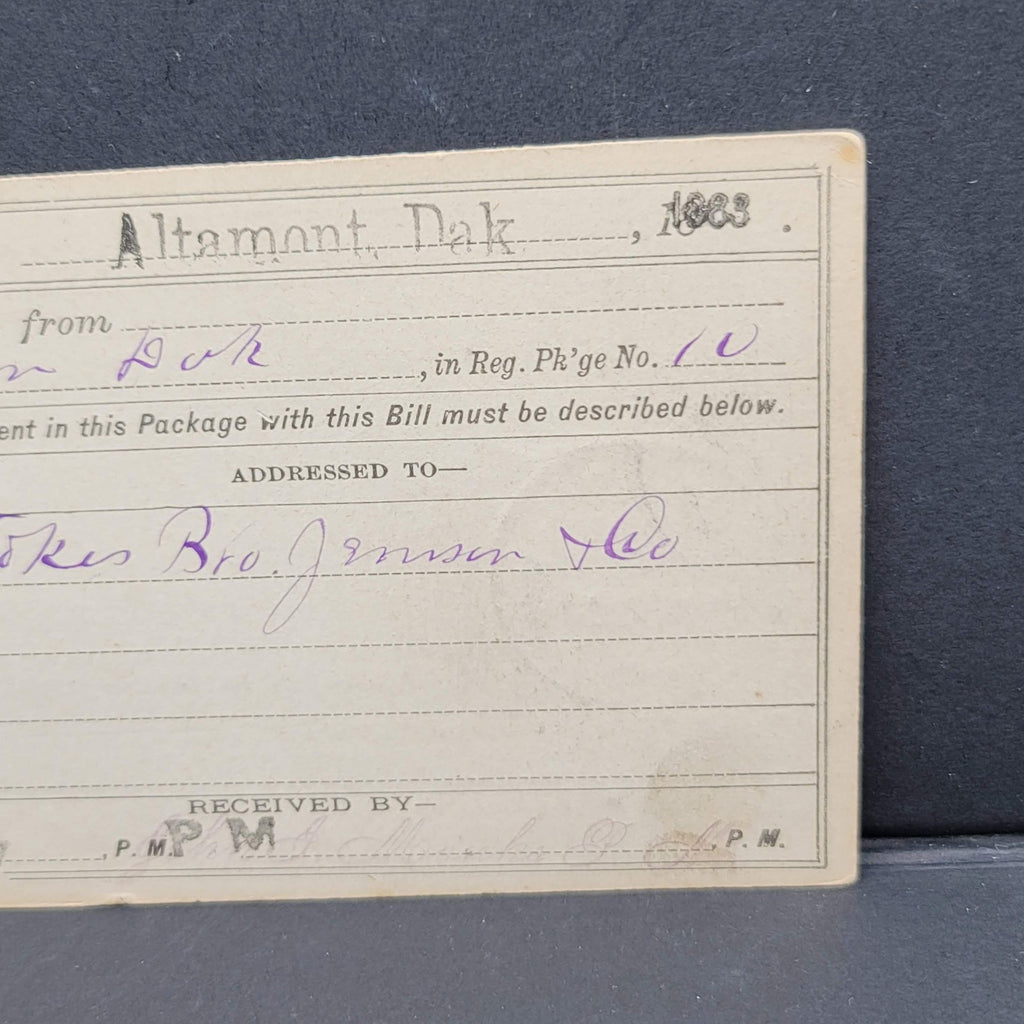 Altamont, Dak , 1883 .
from
Dak , in Reg. Pk'ge No. 10
ent in this Package with this Bill must be described below.
ADDRESSED TO—
Bro. Jemson & Co
RECEIVED BY—
, P. M. P M , P. M.